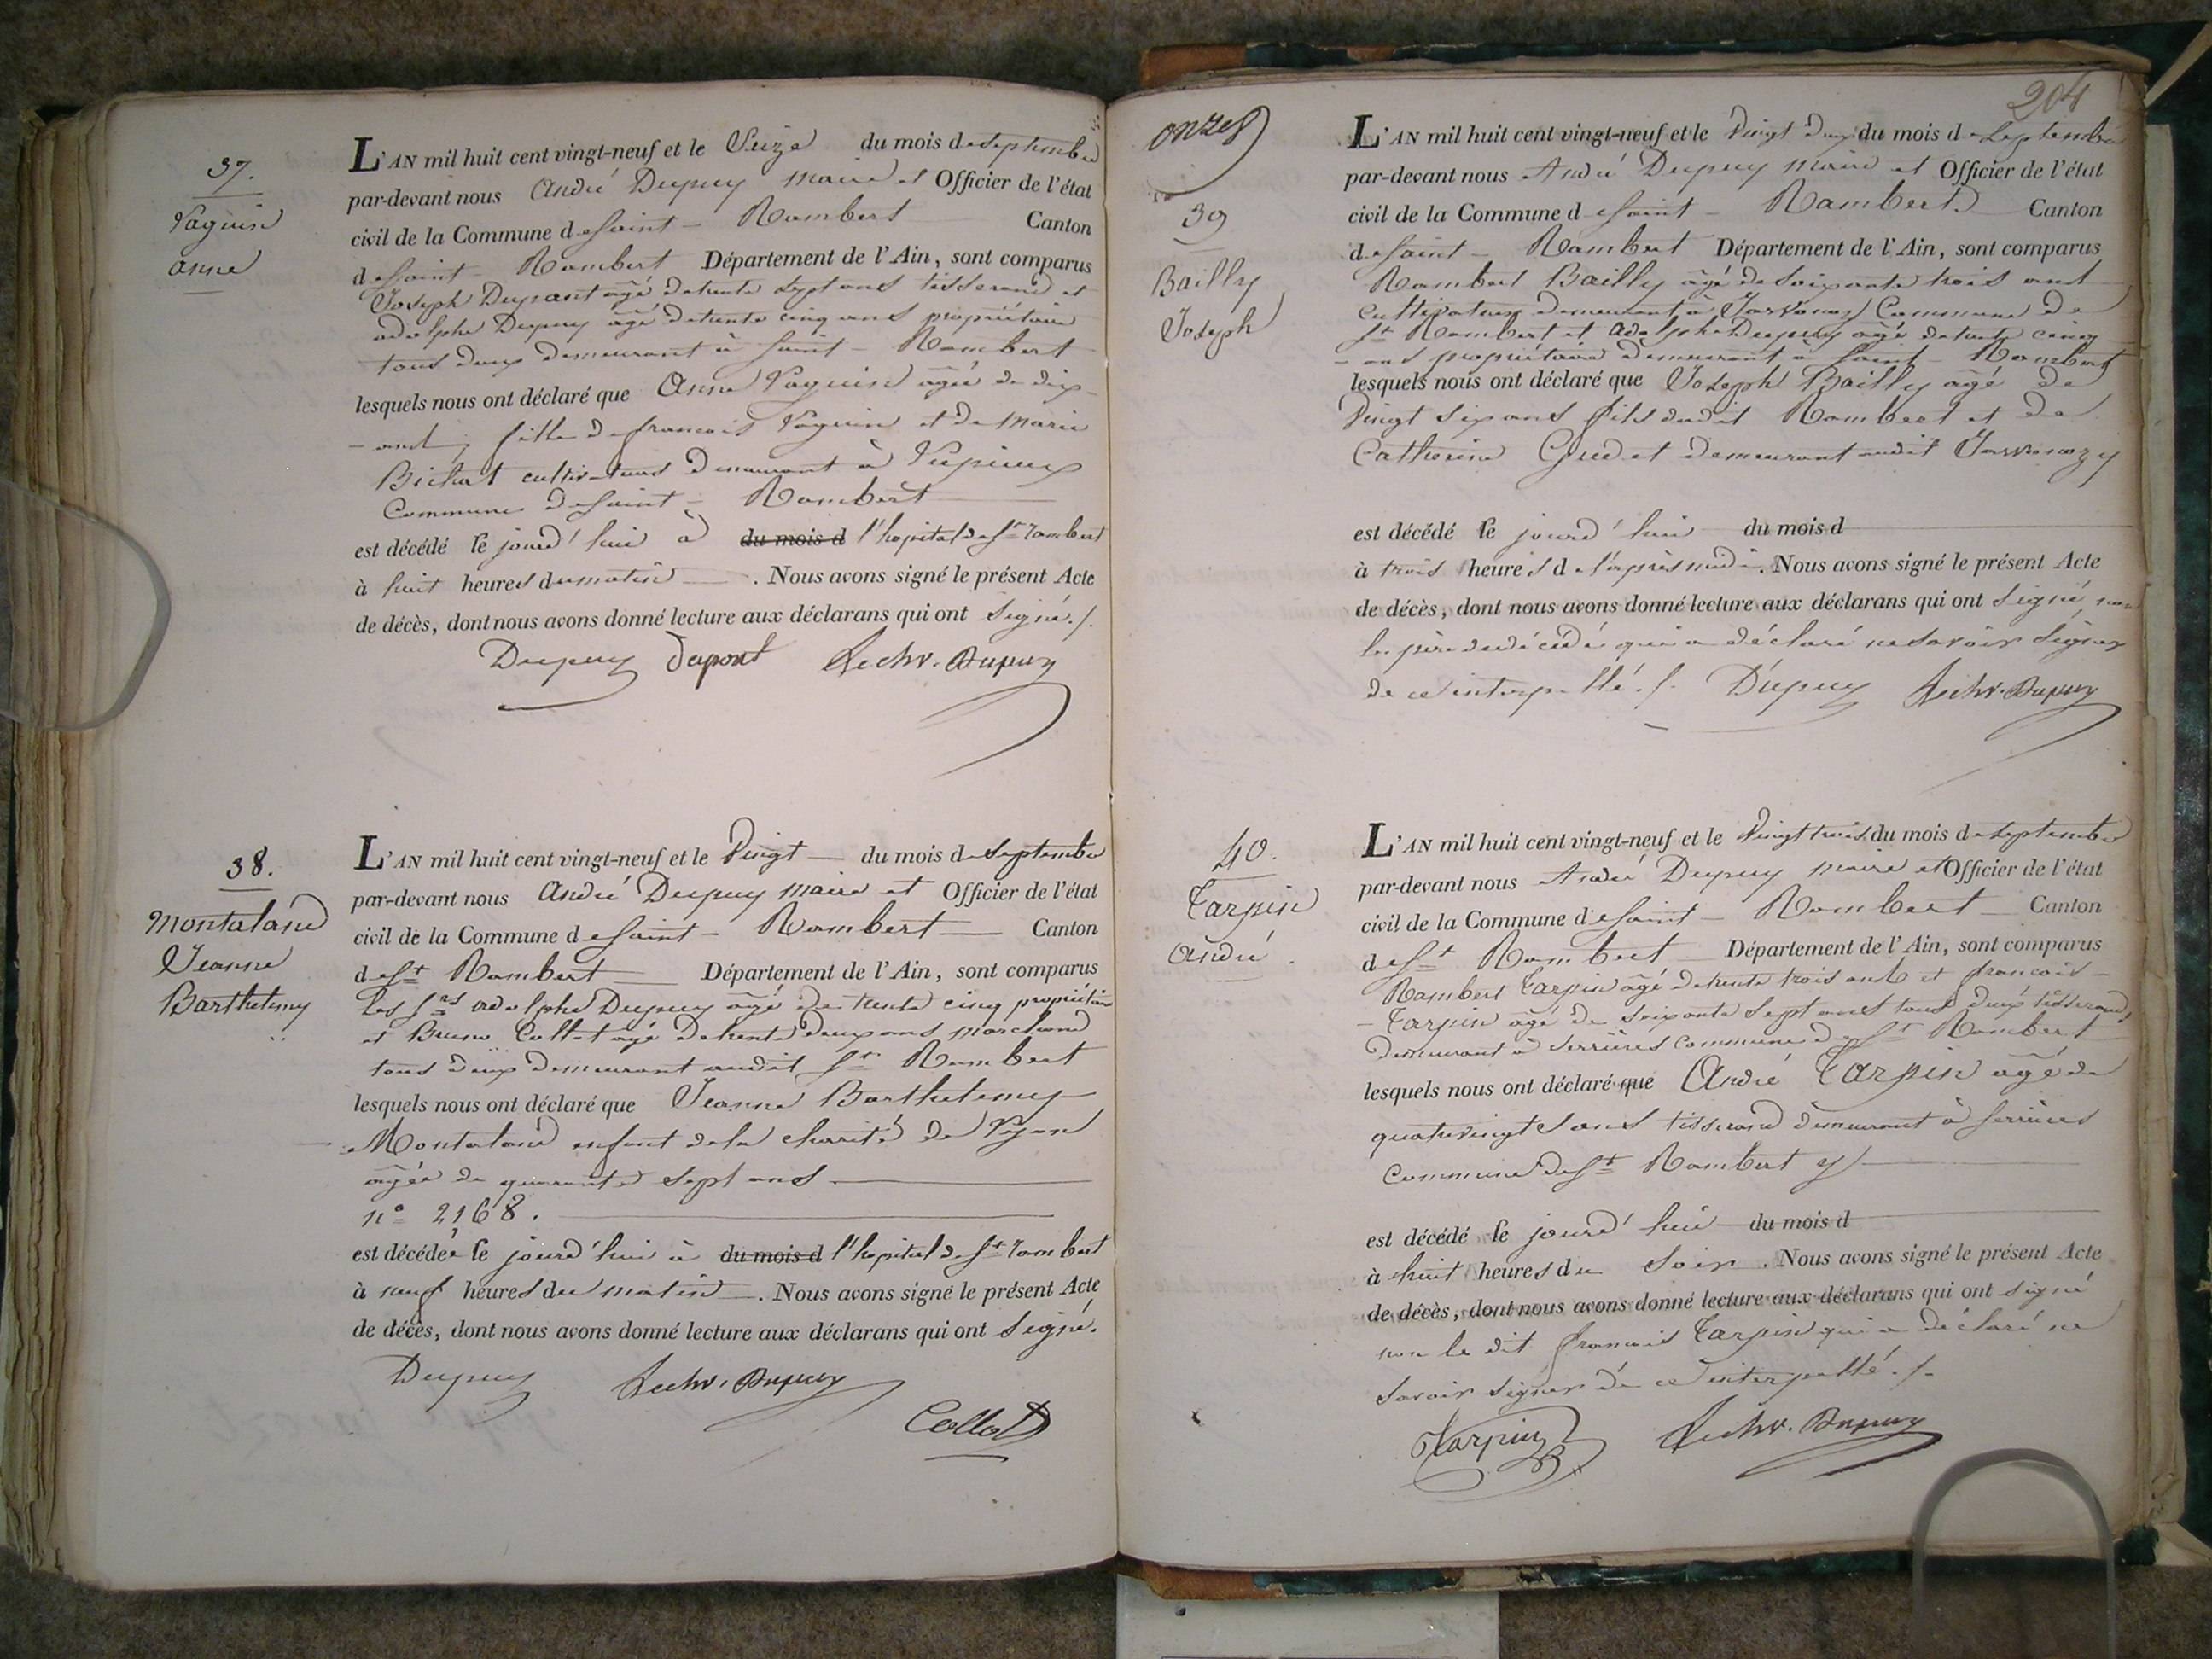 37.
Vaguin
anne
L'AN mil huit cent vingt-neuf et le Seize du mois de Septembre
par-devant nous André Dupuy maire et Officier de l'état
civil de la Commune de Saint - Rambert Canton
de Saint - Rambert Département de l'Ain, sont comparus
Joseph Dupont agé de trente sept ans tisserand et
adolphe Dupuy âgé de trente cinq ans propriétaire
tous deux demeurant à Saint - Rambert
lesquels nous ont déclaré que Anne Vaguin agée de dix
- ans, fille de francois Vaguin et de Marie
Bichat cultivateurs demeurant à
Commune de Saint - Rambert
est décédé le jourd'hui à du mois d l'hopital de St rambert
à huit heures du matin . Nous avons signé le présent Acte
de décès, dont nous avons donné lecture aux déclarans qui ont Signé ./.
Dupuy dupont Dupuy
38.
Montaland
Jeanne
Barthelemy
L'AN mil huit cent vingt-neuf et le Vingt du mois de Septembre
par-devant nous André Dupuy maire et Officier de l'état
civil de la Commune de Saint - Rambert Canton
de St Rambert Département de l'Ain, sont comparus
Les Srs adolphe Dupuy agé de trente cinq propriétaire
et Bruno Collot agé de trente deux ans marchand
tous deux demeurant audit St Rambert
lesquels nous ont déclaré que Jeanne Barthelemy
Montaland enfant de la charité de Lyon
agée de quarante sept ans
n° 2168.
est décédée le jourd'hui à du mois d l'hopital de St rambert
à neuf heures du matin . Nous avons signé le présent Acte
de décès, dont nous avons donné lecture aux déclarans qui ont Signé.
Dupuy Dupuy
Collot
204
onze
39
Bailly
Joseph
L'AN mil huit cent vingt-neuf et le Vingt deux du mois de Septembre
par-devant nous André Dupuy maire et Officier de l'état
civil de la Commune de Saint - Rambert Canton
de Saint - Rambert Département de l'Ain, sont comparus
Rambert Bailly agé de soixante trois ans
cultivateur demeurant à Javornoz Commune de
St Rambert et adolphe Dupuy agé de trente cinq
- ans propriétaire demeurant à Saint - Rambert
lesquels nous ont déclaré que Joseph Bailly agé de
Vingt six ans fils dudit Rambert et de
Catherine demeurant audit Javornoz
est décédé le jourd'hui du mois d
à trois heures de l'après midi . Nous avons signé le présent Acte
de décès, dont nous avons donné lecture aux déclarans qui ont signé, non
le père du décédé qui a déclaré ne savoir signer
de ce interpellé ./. Dupuy Dupuy
40.
Tarpin
André.
L'AN mil huit cent vingt-neuf et le Vingt trois du mois de Septembre
par-devant nous André Dupuy maire et Officier de l'état
civil de la Commune de Saint - Rambert Canton
de St Rambert Département de l'Ain, sont comparus
Rambert Tarpin âgé de trente trois ans et francois
- Tarpin agé de soixante sept ans tous deux tisserands
demeurant à Serrières commune de St Rambert
lesquels nous ont déclaré que André Tarpin agé de
quatrevingts ans tisserand demeurant à Serrières
Commune de St Rambert
est décédé le jourd'hui du mois d
à huit heures du Soir . Nous avons signé le présent Acte
de décès, dont nous avons donné lecture aux déclarans qui ont signé
non le dit francois Tarpin qui a déclaré ne
savoir signer de ce interpellé ./.
Tarpin Dupuy